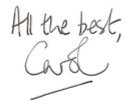 All the best,
Carol